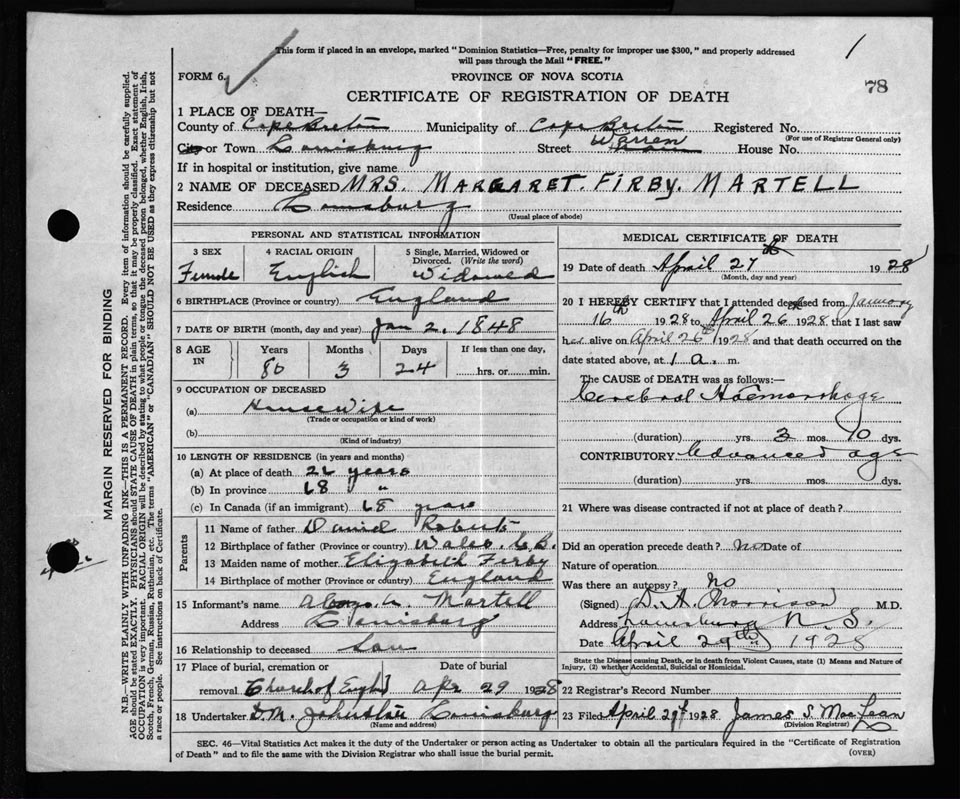 This form if placed in an envelope, marked "Dominion Statistics—Free, penalty for improper use $300," and properly addressed
will pass through the Mail "FREE."
1
FORM 6.
PROVINCE OF NOVA SCOTIA
78
CERTIFICATE OF REGISTRATION OF DEATH
1 PLACE OF DEATH—
County of Cape Breton Municipality of Cape Breton Registered No.
(For use of Registrar General only)
City or Town Louisburg Street Warren House No.
If in hospital or institution, give name
2 NAME OF DECEASED MRS. MARGARET. FIRBY. MARTELL
Residence Louisburg
(Usual place of abode)
PERSONAL AND STATISTICAL INFORMATION
3 SEX 4 RACIAL ORIGIN 5 Single, Married, Widowed or Divorced. (Write the word)
Female English Widowed
6 BIRTHPLACE (Province or country) England
7 DATE OF BIRTH (month, day and year) Jan 2, 1848
8 AGE IN Years Months Days If less than one day,
80 3 24 hrs. or min.
9 OCCUPATION OF DECEASED
(a) House Wife
(Trade or occupation or kind of work)
(b)
(Kind of industry)
10 LENGTH OF RESIDENCE (in years and months)
(a) At place of death 26 years
(b) In province 68 "
(c) In Canada (if an immigrant) 68 years
Parents
11 Name of father Daniel Roberts
12 Birthplace of father (Province or country) Wales, G.B.
13 Maiden name of mother Elizabeth Firby
14 Birthplace of mother (Province or country) England
15 Informant's name Martell
Address Louisburg
16 Relationship to deceased Son
17 Place of burial, cremation or removal Date of burial
Church of Engld Apr 29 1928
18 Undertaker D.M. Johnstone Louisburg
(Name and address)
MEDICAL CERTIFICATE OF DEATH
19 Date of death April 27th 1928
(Month, day and year)
20 I HEREBY CERTIFY that I attended deceased from January
16th 1928 to April 26th 1928 that I last saw
her alive on April 26th 1928 and that death occurred on the
date stated above, at 1 a. m.
The CAUSE of DEATH was as follows:
Cerebral Haemorrhage
(duration) yrs. 3 mos. 10 dys.
CONTRIBUTORY Advanced age
(duration) yrs. mos. dys.
21 Where was disease contracted if not at place of death?
Did an operation precede death? no Date of
Nature of operation
Was there an autopsy? no
(Signed) D. A. Morrison M.D.
Address Louisburg N. S.
Date April 29th 1928
State the Disease causing Death, or in death from Violent Causes, state (1) Means and Nature of
Injury, (2) whether Accidental, Suicidal or Homicidal.
22 Registrar's Record Number
23 Filed April 29th 1928 James S MacLean
(Division Registrar)
SEC. 46—Vital Statistics Act makes it the duty of the Undertaker or person acting as Undertaker to obtain all the particulars required in the "Certificate of Registration
of Death" and to file the same with the Division Registrar who shall issue the burial permit.
(OVER)
MARGIN RESERVED FOR BINDING
N.B.—WRITE PLAINLY WITH UNFADING INK—THIS IS A PERMANENT RECORD. Every item of information should be carefully supplied.
AGE should be stated EXACTLY. PHYSICIANS should STATE CAUSE OF DEATH in plain terms, so that it may be properly classified. Exact statement of
OCCUPATION is very important. RACIAL ORIGIN will be described by stating to what people or tongue the deceased person belonged, whether English, Irish,
Scotch, French, German, Russian, Ruthenian, etc. The terms "AMERICAN" or "CANADIAN" SHOULD NOT BE USED as they express citizenship but not
a race or people. See instructions on back of Certificate.